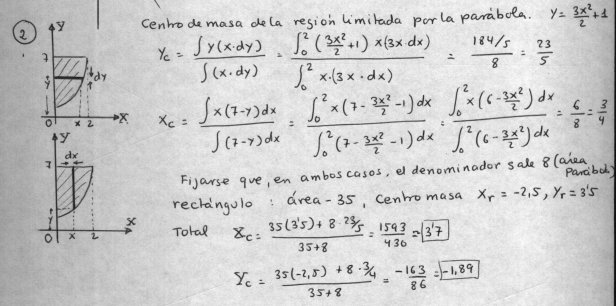 2
Centro de masa de la región limitada por la parábola. y = 3x²/2 + 1
Y_c = ∫y(x·dy) / ∫(x·dy) = ∫₀² (3x²/2 + 1) x(3x·dx) / ∫₀² x·(3x·dx) = 184/5 / 8 = 23/5
X_c = ∫x(7-y)dx / ∫(7-y)dx = ∫₀² x(7 - 3x²/2 - 1)dx / ∫₀² (7 - 3x²/2 - 1)dx = ∫₀² x(6 - 3x²/2)dx / ∫₀² (6 - 3x²/2)dx = 6/8 = 3/4
Fijarse que, en ambos casos, el denominador sale 8 (área parábola)
rectángulo : área - 35, Centro masa X_r = -2,5, Y_r = 3'5
Total X_c = 35(3'5) + 8·23/5 / 35+8 = 1593/430 = 3'7
Y_c = 35(-2,5) + 8·3/4 / 35+8 = -163/86 = -1,89
Y
7
y
dy
0
x
2
X
Y
dx
7
y
0
x
2
X